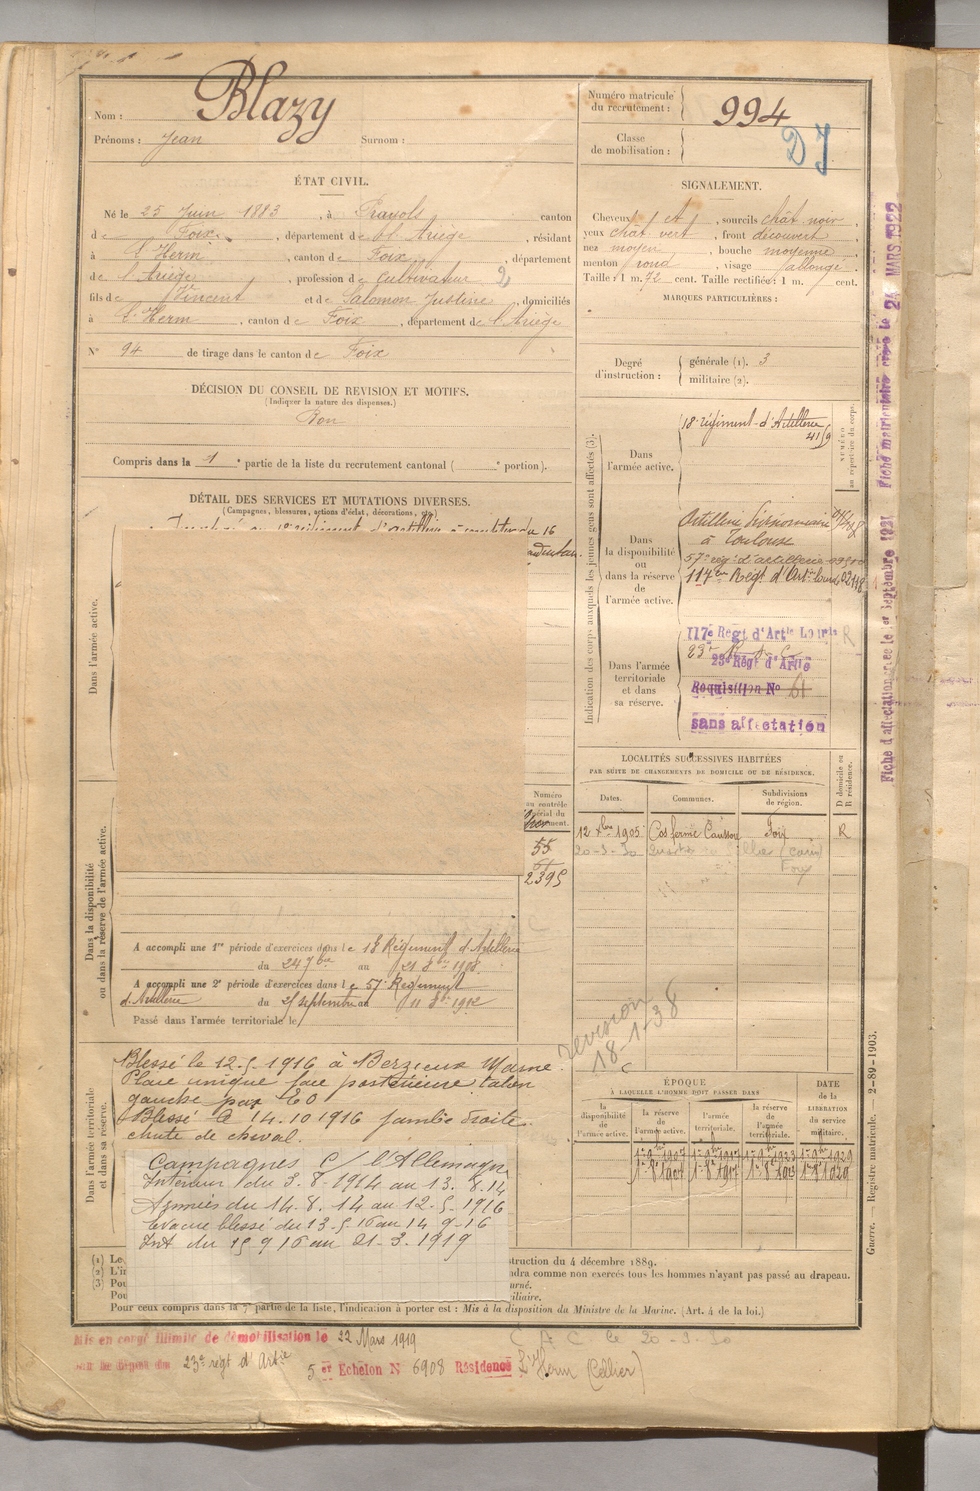 Nom : Blazy
Prénoms : Jean Surnom :
ÉTAT CIVIL.
Né le 25 Juin 1883, à Pravols canton
de Foix, département de l'Ariège, résidant
à L'Herm, canton de Foix, département
de l'Ariège, profession de Cultivateur
fils de Vincent et de Salomon Justine, domiciliés
à L'Herm, canton de Foix, département de l'Ariège
N° 94 de tirage dans le canton de Foix
DÉCISION DU CONSEIL DE REVISION ET MOTIFS.
(Indiquer la nature des dispenses.)
Bon
Compris dans la 1e partie de la liste du recrutement cantonal ( e portion).
DÉTAIL DES SERVICES ET MUTATIONS DIVERSES.
(Campagnes, blessures, actions d'éclat, décorations, etc.)
du 16
Dans l'armée active.
Dans la disponibilité
ou dans la réserve de l'armée active.
Numéro
au contrôle
spécial du
55
61
2395
A accompli une 1re période d'exercices dans le 18 Régiment d'Artillerie
du 24 7bre au 21 8bre 1908
A accompli une 2e période d'exercices dans le 57e Régiment
d'Artillerie du 25 septembre au 11 8bre 1912
Passé dans l'armée territoriale le
Dans l'armée territoriale
et dans sa réserve.
Blessé le 12.5.1916 à Berzieux Marne.
Plaie unique face postérieure talon
gauche par EO
Blessé le 14.10 1916 jambe droite
chute de cheval.
Campagnes C/ l'Allemagne
Intérieur du 3.8.1914 au 13.8.14
Armées du 14.8.14 au 12.5.1916
Evacué blessé du 13.5.16 au 14.9.16
Int du 15 9 16 au 21.3.1919
(1) Le
(2) L'in
(3) Pou
Pou
struction du 4 décembre 1889.
ndra comme non exercés tous les hommes n'ayant pas passé au drapeau.
urné.
iliaire.
Pour ceux compris dans la 7e partie de la liste, l'indication à porter est : Mis à la disposition du Ministre de la Marine. (Art. 4 de la loi.)
Mis en congé illimité de démobilisation le 22 Mars 1919
23e régt d'Artie
5e Echelon N° 6908 Résidence L'Herm (Cellier)
C.A.C. le 20-3-30
Numéro matricule
du recrutement : 994
Classe
de mobilisation :
DJ
SIGNALEMENT.
Cheveux et, sourcils chât noir,
yeux chât vert, front découvert,
nez moyen, bouche moyenne,
menton rond, visage allongé.
Taille : 1 m. 72 cent. Taille rectifiée : 1 m. cent.
MARQUES PARTICULIÈRES :
Degré
d'instruction :
générale (1). 3
militaire (2).
Indication des corps auxquels les jeunes gens sont affectés (3).
NUMÉRO
au répertoire du corps.
Dans
l'armée active.
18e régiment d'Artillerie
4159
Dans
la disponibilité
ou
dans la réserve
de
l'armée active.
Artillerie
à Toulouse
57e rég. d'artillerie
117e Régt d'Art. Lourde 02418
Dans l'armée
territoriale
et dans
sa réserve.
117e Regt d'Artie Lourde R
23e Régt d'Artie
Requisition N° 61
sans affectation
LOCALITÉS SUCCESSIVES HABITÉES
PAR SUITE DE CHANGEMENTS DE DOMICILE OU DE RÉSIDENCE.
Dates. Communes. Subdivisions
de région. D domicile ou
R résidence.
12 Xbre 1905 Foix R
20-3-30
Foix
revision
18-1-38
ÉPOQUE
À LAQUELLE L'HOMME DOIT PASSER DANS
la
disponibilité
de
l'armée active.
la réserve
de
l'armée active.
l'armée
territoriale.
la réserve
de
l'armée
territoriale.
DATE
de la
LIBÉRATION
du service
militaire.
Guerre. — Registre matricule. 2-89-1903.
Fiche matriculaire créée le 24 MARS 1922
Fiche d'affectation créée le 1er septembre 1921